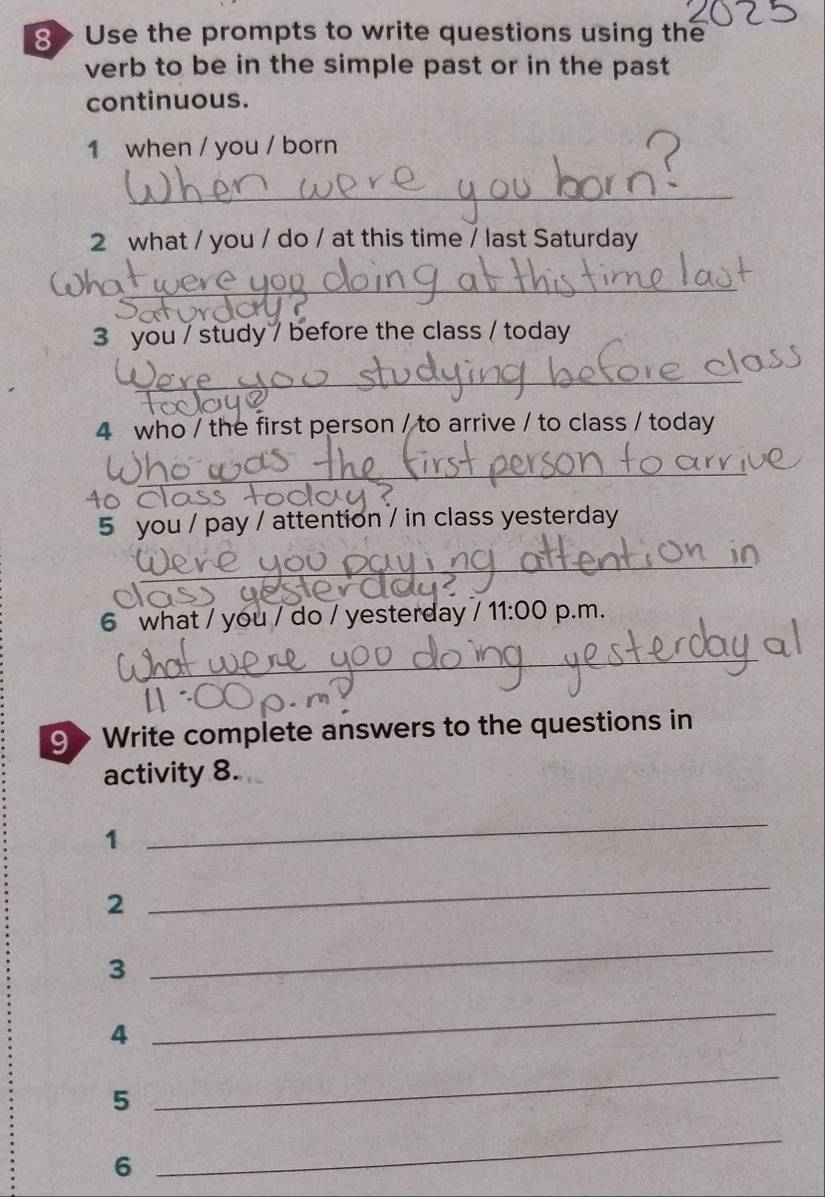 2025
8 Use the prompts to write questions using the
verb to be in the simple past or in the past
continuous.
1 when / you / born
When were you born?
2 what / you / do / at this time / last Saturday
What were you doing at this time last
Saturday?
3 you / study / before the class / today
Were you studying before class
today?
4 who / the first person / to arrive / to class / today
Who was the first person to arrive
to class today?
5 you / pay / attention / in class yesterday
Were you paying attention in
class yesterday?
6 what / you / do / yesterday / 11:00 p.m.
What were you doing yesterday al
11:00 p.m?
9 Write complete answers to the questions in
activity 8.
1
2
3
4
5
6